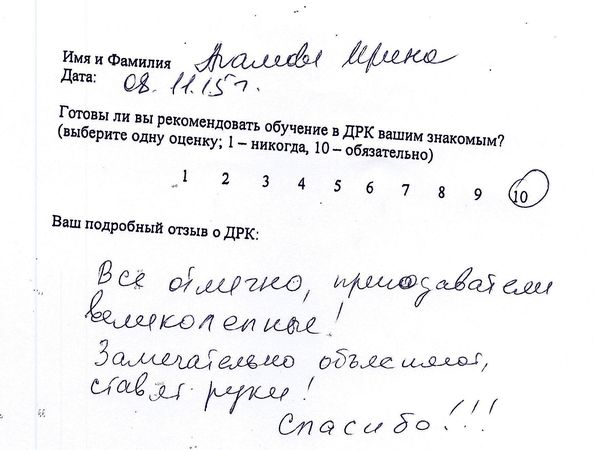 Имя и Фамилия Ирина
Дата: 08.11.15г.
Готовы ли вы рекомендовать обучение в ДРК вашим знакомым?
(выберите одну оценку; 1 – никогда, 10 – обязательно)
1 2 3 4 5 6 7 8 9 10
Ваш подробный отзыв о ДРК:
Все отлично, преподаватели
великолепные!
Замечательно объясняют,
ставят руки!
Спасибо!!!